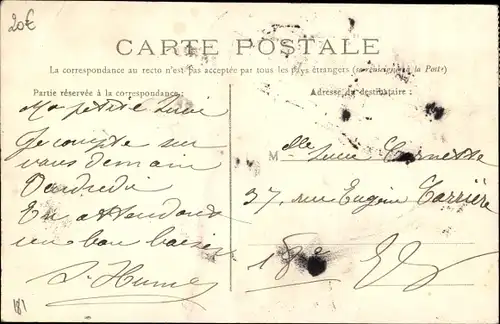 20€
CARTE POSTALE
La correspondance au recto n'est pas acceptée par tous les pays étrangers (se renseigner à la Poste)
Partie réservée à la correspondance :
Adresse du destinataire :
Ma petite
Je compte sur
vous demain
Vendredi
En attendant
un bon baiser
Mlle
37, rue Eugène Carrière
18e
181